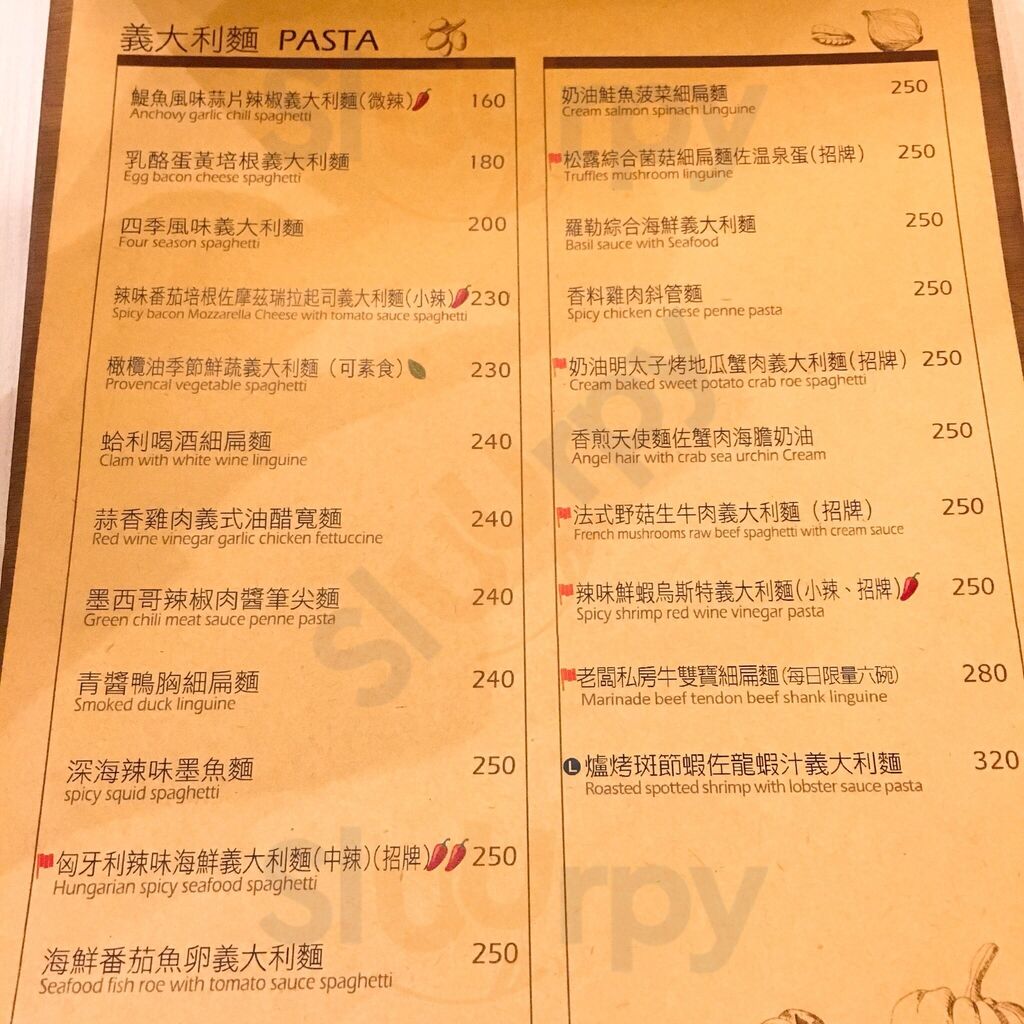 義大利麵 PASTA
鯷魚風味蒜片辣椒義大利麵(微辣) 160
Anchovy garlic chili spaghetti
乳酪蛋黃培根義大利麵 180
Egg bacon cheese spaghetti
四季風味義大利麵 200
Four season spaghetti
辣味番茄培根佐摩茲瑞拉起司義大利麵(小辣) 230
Spicy bacon Mozzarella Cheese with tomato sauce spaghetti
橄欖油季節鮮蔬義大利麵（可素食） 230
Provencal vegetable spaghetti
蛤利喝酒細扁麵 240
Clam with white wine linguine
蒜香雞肉義式油醋寬麵 240
Red wine vinegar garlic chicken fettuccine
墨西哥辣椒肉醬筆尖麵 240
Green chili meat sauce penne pasta
青醬鴨胸細扁麵 240
Smoked duck linguine
深海辣味墨魚麵 250
spicy squid spaghetti
匈牙利辣味海鮮義大利麵(中辣)(招牌) 250
Hungarian spicy seafood spaghetti
海鮮番茄魚卵義大利麵 250
Seafood fish roe with tomato sauce spaghetti
奶油鮭魚菠菜細扁麵 250
Cream salmon spinach Linguine
松露綜合菌菇細扁麵佐温泉蛋(招牌) 250
Truffles mushroom linguine
羅勒綜合海鮮義大利麵 250
Basil sauce with Seafood
香料雞肉斜管麵 250
Spicy chicken cheese penne pasta
奶油明太子烤地瓜蟹肉義大利麵(招牌) 250
Cream baked sweet potato crab roe spaghetti
香煎天使麵佐蟹肉海膽奶油 250
Angel hair with crab sea urchin Cream
法式野菇生牛肉義大利麵（招牌） 250
French mushrooms raw beef spaghetti with cream sauce
辣味鮮蝦烏斯特義大利麵(小辣、招牌) 250
Spicy shrimp red wine vinegar pasta
老闆私房牛雙寶細扁麵(每日限量六碗) 280
Marinade beef tendon beef shank linguine
L 爐烤斑節蝦佐龍蝦汁義大利麵 320
Roasted spotted shrimp with lobster sauce pasta
sluurpy
sluurpy
sluurpy